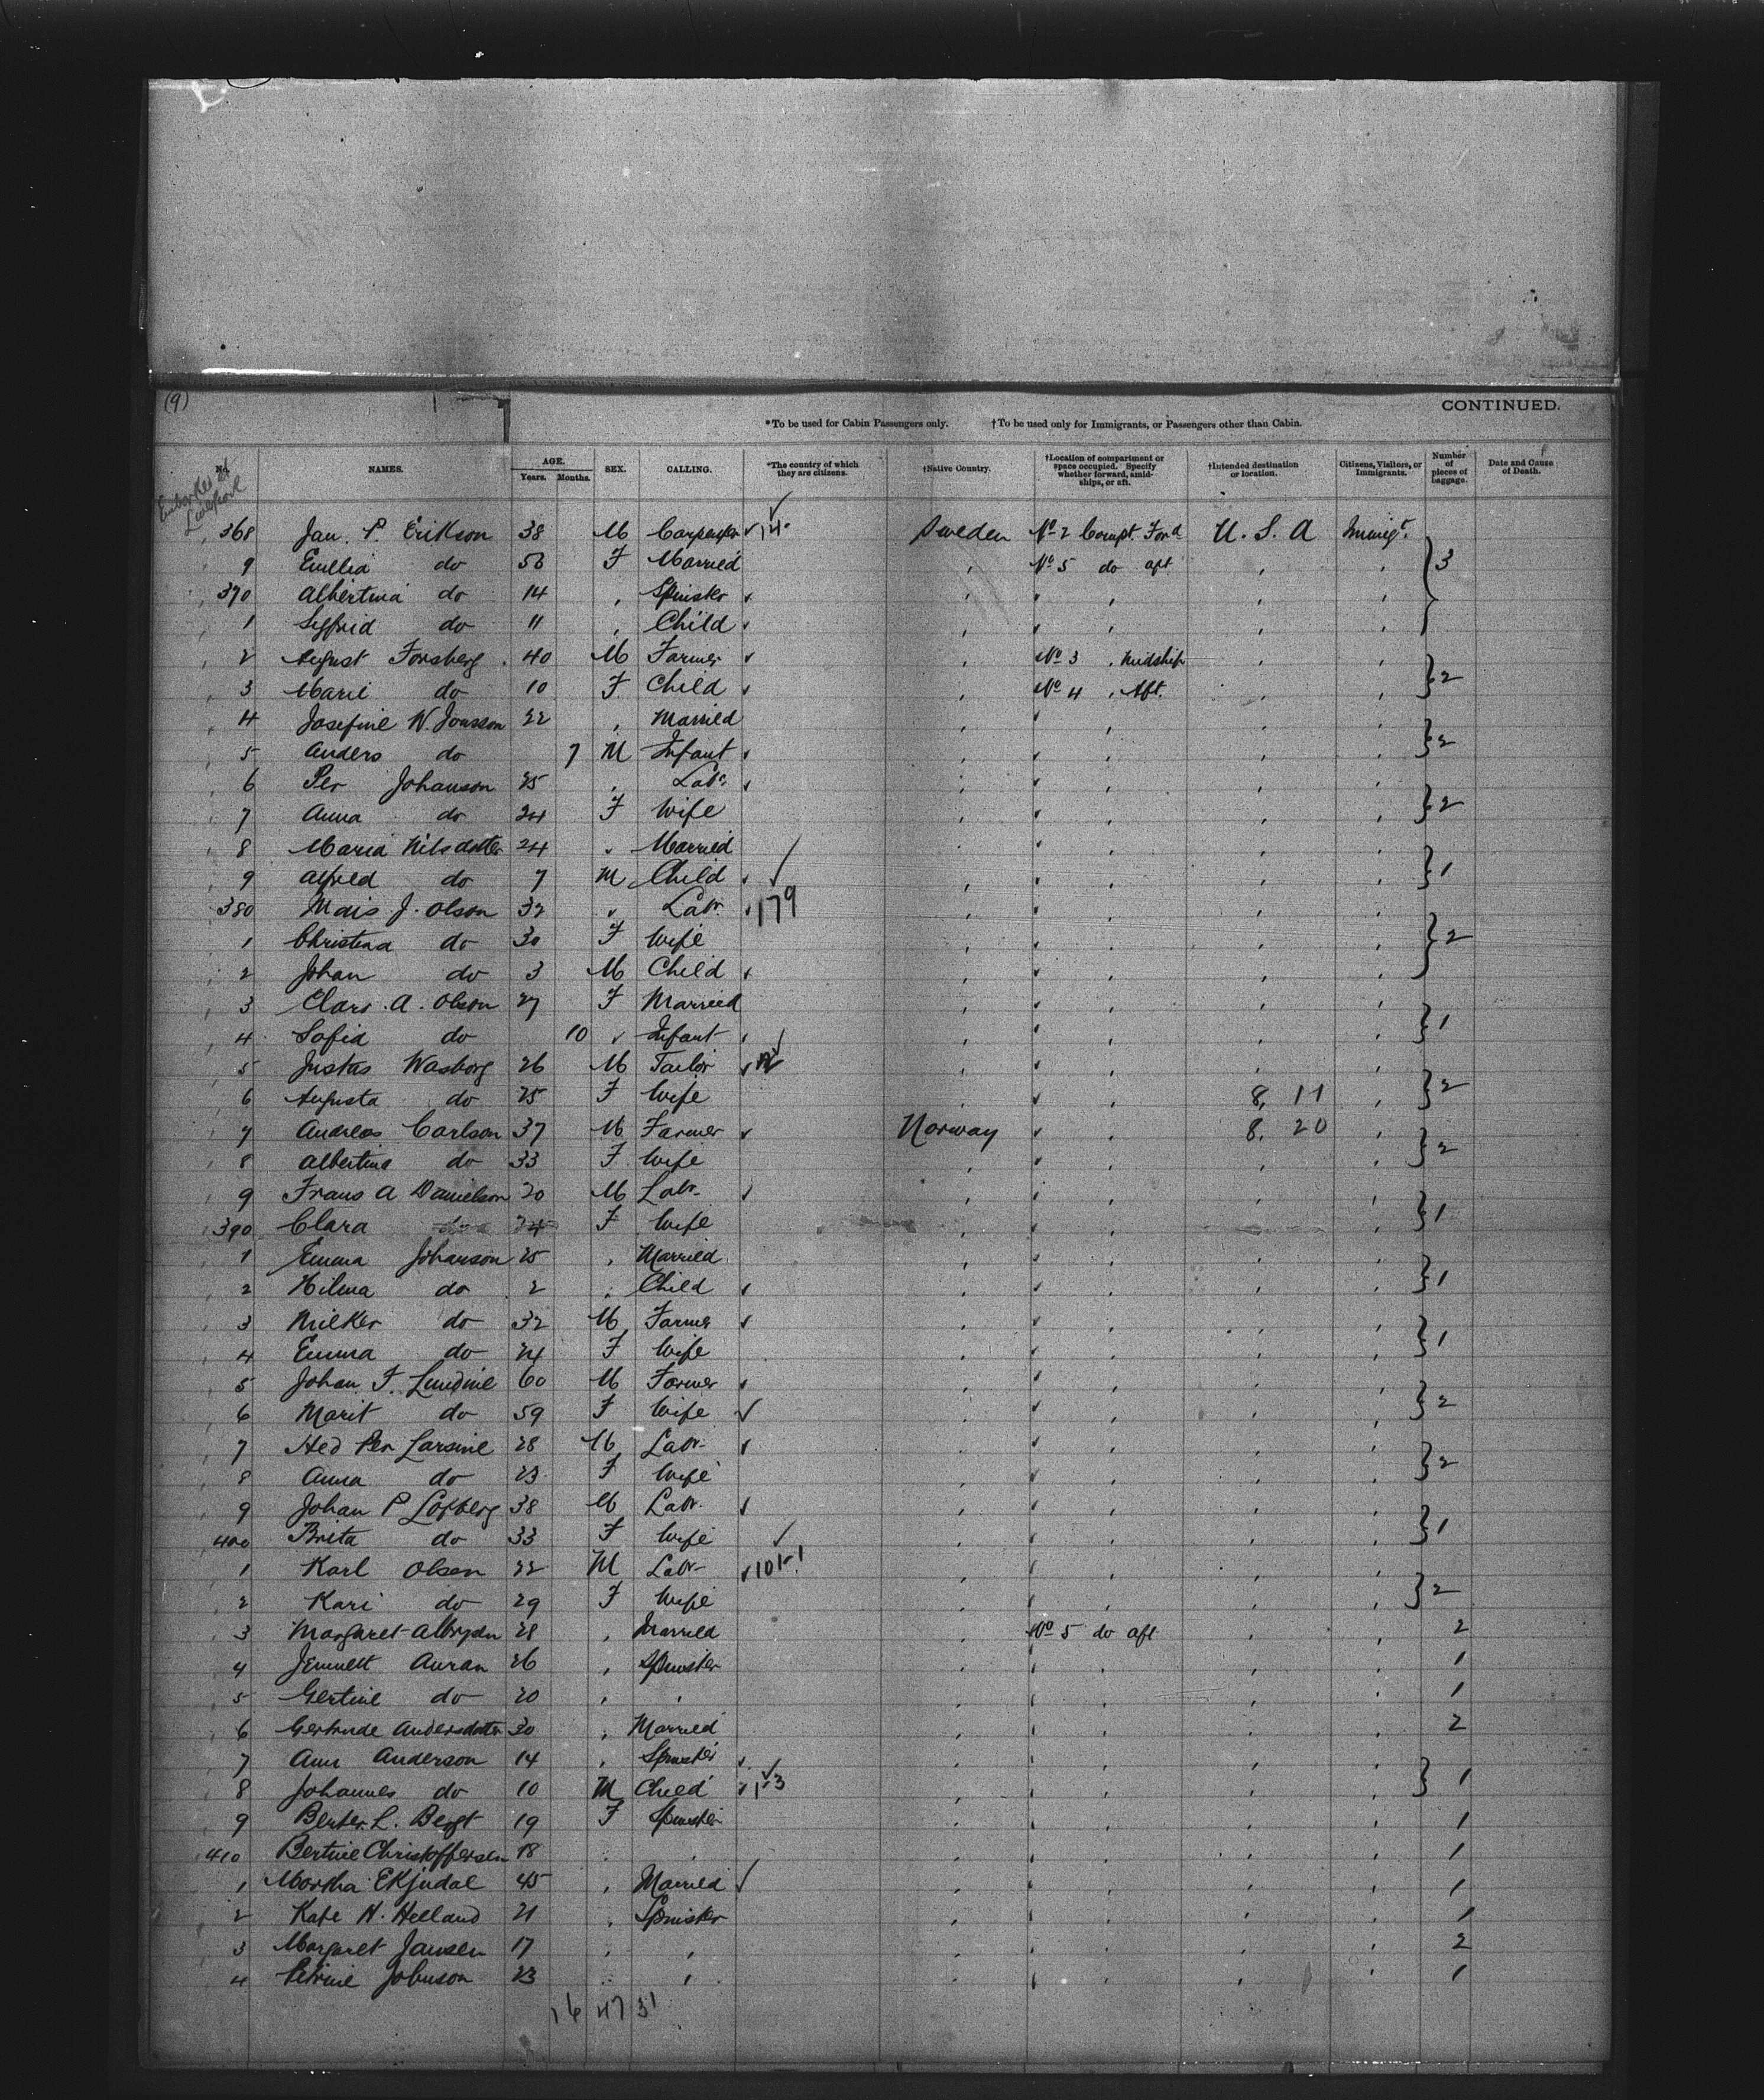 (9)
CONTINUED.
*To be used for Cabin Passengers only. †To be used only for Immigrants, or Passengers other than Cabin.
No. NAMES. AGE. Years. Months. SEX. CALLING. *The country of which they are citizens. †Native Country. †Location of compartment or space occupied. Specify whether forward, amidships, or aft. †Intended destination or location. Citizens, Visitors, or Immigrants. Number of pieces of baggage. Date and Cause of Death.
Embarked at Liverpool
368 Jan. P. Erikson 38 M Carpenter Sweden No 2 Compt. Ford U. S. A Immigt.
9 Emilia do 56 F Married , No 5 do aft , , 3
370 Albertina do 14 , Spinster , , , ,
1 Sigfrid do 11 , Child , , , ,
2 August Forsberg 40 M Farmer , No 3 , Midship , ,
3 Marie do 10 F Child , No 4 , Aft. , , 2
4 Josefine W. Jonsson 22 , Married , , , ,
5 Anders do 7 M Infant , , , , 2
6 Per Johanson 25 , Labr , , , ,
7 Anna do 24 F Wife , , , , 2
8 Maria Nilsdotter 24 " Married , , , ,
9 Alfred do 7 M Child , , , , 1
380 Mais J. Olson 32 " Labr. 179 , , , ,
1 Christina do 30 F Wife , , , , 2
2 Johan do 3 M Child , , , ,
3 Clara A. Olson 27 F Married , , , ,
4 Sofia do 10 " Infant , , , , 1
5 Justas Wasborg 26 M Tailor , , , ,
6 Augusta do 25 F Wife , , 8, 11 , 2
7 Andreas Carlson 37 M Farmer Norway , 8. 20 ,
8 Albertina do 33 F Wife , , , , 2
9 Frans A Danielson 20 M Labr , , , ,
390 Clara do 24 F Wife , , , , 1
1 Emma Johanson 25 , Married , , , ,
2 Hilma do 2 , Child , , , , 1
3 Milker do 32 M Farmer , , , ,
4 Emma do 24 F Wife , , , , 1
5 Johan F. Lundine 60 M Farmer , , , ,
6 Marit do 59 F Wife , , , , 2
7 Hed Per Larsine 28 M Labr , , , ,
8 Anna do 23 F Wife , , , , 2
9 Johan P Löfberg 38 M Labr. , , , ,
400 Brita do 33 F Wife , , , , 1
1 Karl Olsen 22 M Labr , , , ,
2 Kari do 29 F Wife , , , , 2
3 Margaret 28 , Married , No 5 do aft , , 2
4 Auran 26 , Spinster , , , , 1
5 Gertine do 20 , , , , , , 1
6 Gertrude Andersdatter 30 , Married , , , , 2
7 Ann Anderson 14 , Spinster , , , ,
8 Johannes do 10 M Child , , , , 1
9 L. 19 F Spinster , , , , 1
410 Bertine Christoffersen 18 , , , , , , 1
1 Martha 45 , Married , , , , 1
2 Kate N. Helland 21 , Spinster , , , , 1
3 Margaret Jansen 17 , , , , , , 2
4 Petrine Johnson 23 , , , , , , 1
16 47 31